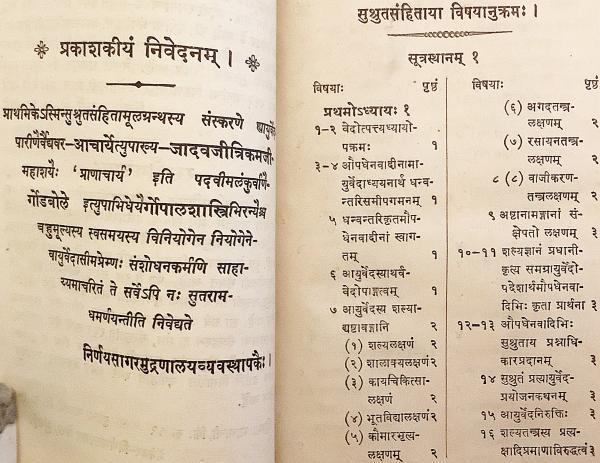 प्रकाशकीयं निवेदनम् ।
प्राथमिकेऽस्मिन्सुश्रुतसंहितामूलग्रन्थस्य संस्करणे
पारीणैर्वैद्यवर-आचार्येत्युपाख्य-जादवजीत्रिकमजी-
महाशयैः 'प्राणाचार्य' इति पदवीमलंकुर्वाणै-
र्गोडबोले इत्युपाभिधेयैर्गोपालशास्त्रिभिरन्यैश्च
बहुमूल्यस्य स्वसमयस्य विनियोगेन नियोगेने-
वायुर्वेदासीमप्रेम्णः संशोधनकर्मणि साहा-
य्यमाचरितं ते सर्वेऽपि नः सुतराम-
धमर्णयन्तीति निवेद्यते
निर्णयसागरमुद्रणालयव्यवस्थापकैः।
सुश्रुतसंहिताया विषयानुक्रमः।
सूत्रस्थानम् १
विषयाः पृष्ठं
प्रथमोऽध्यायः १
१-२ वेदोत्पत्त्यध्यायो-
पक्रमः १
३-४ औपधेनवादीनामा-
युर्वेदाध्ययनार्थ धन्व-
न्तरिसमीपगमनम् १
५ धन्वन्तरिकृतमौप-
धेनवादीनां स्वाग-
तम् १
६ आयुर्वेदस्याथर्व-
वेदोपाङ्गत्वम् १
७ आयुर्वेदस्य शल्या-
द्यष्टावङ्गानि २
(१) शल्यलक्षणं २
(२) शालाक्यलक्षणं २
(३) कायचिकित्सा-
लक्षणं २
(४) भूतविद्यालक्षणं २
(५) कौमारभृत्य-
लक्षणम् २
विषयाः पृष्ठं
(६) अगदतन्त्र-
लक्षणम् २
(७) रसायनतन्त्र-
लक्षणम् २
८ (८) वाजीकरण-
तन्त्रलक्षणम् २
९ अष्टानामङ्गानां सं-
क्षेपतो लक्षणम् ३
१०-११ शल्यज्ञानं प्रधानी-
कृत्य समग्रायुर्वेदो-
पदेशार्थमौपधेनवा-
दिभिः कृता प्रार्थना ३
१२-१३ औपधेनवादिभिः
सुश्रुताय प्रश्नाधि-
कारप्रदानम् ३
१४ सुश्रुतं प्रत्यायुर्वेद-
प्रयोजनकथनम् ३
१५ आयुर्वेदनिरुक्तिः ३
१६ शल्यतन्त्रस्य प्रत्य-
क्षादिप्रमाणाविरुद्धत्वं ३